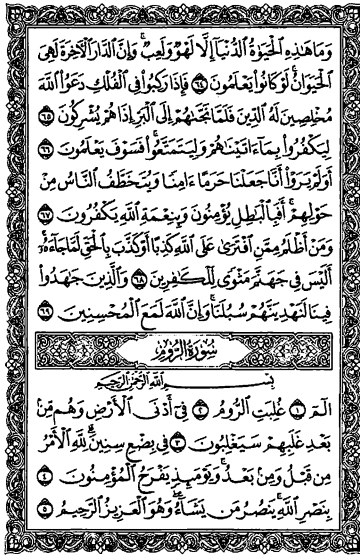 وَمَا هَٰذِهِ الْحَيَوٰةُ الدُّنْيَآ إِلَّا لَهْوٌ وَلَعِبٌ ۚ وَإِنَّ الدَّارَ الْءَاخِرَةَ لَهِىَ
الْحَيَوَانُ ۚ لَوْ كَانُوا۟ يَعْلَمُونَ ٦٤ فَإِذَا رَكِبُوا۟ فِى الْفُلْكِ دَعَوُا۟ اللَّهَ
مُخْلِصِينَ لَهُ الدِّينَ فَلَمَّا نَجَّىٰهُمْ إِلَى الْبَرِّ إِذَا هُمْ يُشْرِكُونَ ٦٥
لِيَكْفُرُوا۟ بِمَآ ءَاتَيْنَٰهُمْ وَلِيَتَمَتَّعُوا۟ ۖ فَسَوْفَ يَعْلَمُونَ ٦٦
أَوَلَمْ يَرَوْا۟ أَنَّا جَعَلْنَا حَرَمًا ءَامِنًا وَيُتَخَطَّفُ النَّاسُ مِنْ
حَوْلِهِمْ ۚ أَفَبِالْبَٰطِلِ يُؤْمِنُونَ وَبِنِعْمَةِ اللَّهِ يَكْفُرُونَ ٦٧
وَمَنْ أَظْلَمُ مِمَّنِ افْتَرَىٰ عَلَى اللَّهِ كَذِبًا أَوْ كَذَّبَ بِالْحَقِّ لَمَّا جَآءَهُۥٓ ۚ
أَلَيْسَ فِى جَهَنَّمَ مَثْوًى لِّلْكَٰفِرِينَ ٦٨ وَالَّذِينَ جَٰهَدُوا۟
فِينَا لَنَهْدِيَنَّهُمْ سُبُلَنَا ۚ وَإِنَّ اللَّهَ لَمَعَ الْمُحْسِنِينَ ٦٩
سُورَةُ الرُّومِ
بِسْمِ اللَّهِ الرَّحْمَٰنِ الرَّحِيمِ
الٓمٓ ١ غُلِبَتِ الرُّومُ ٢ فِىٓ أَدْنَى الْأَرْضِ وَهُم مِّنۢ
بَعْدِ غَلَبِهِمْ سَيَغْلِبُونَ ٣ فِى بِضْعِ سِنِينَ ۗ لِلَّهِ الْأَمْرُ
مِن قَبْلُ وَمِنۢ بَعْدُ ۚ وَيَوْمَئِذٍ يَفْرَحُ الْمُؤْمِنُونَ ٤
بِنَصْرِ اللَّهِ ۚ يَنصُرُ مَن يَشَآءُ ۖ وَهُوَ الْعَزِيزُ الرَّحِيمُ ٥